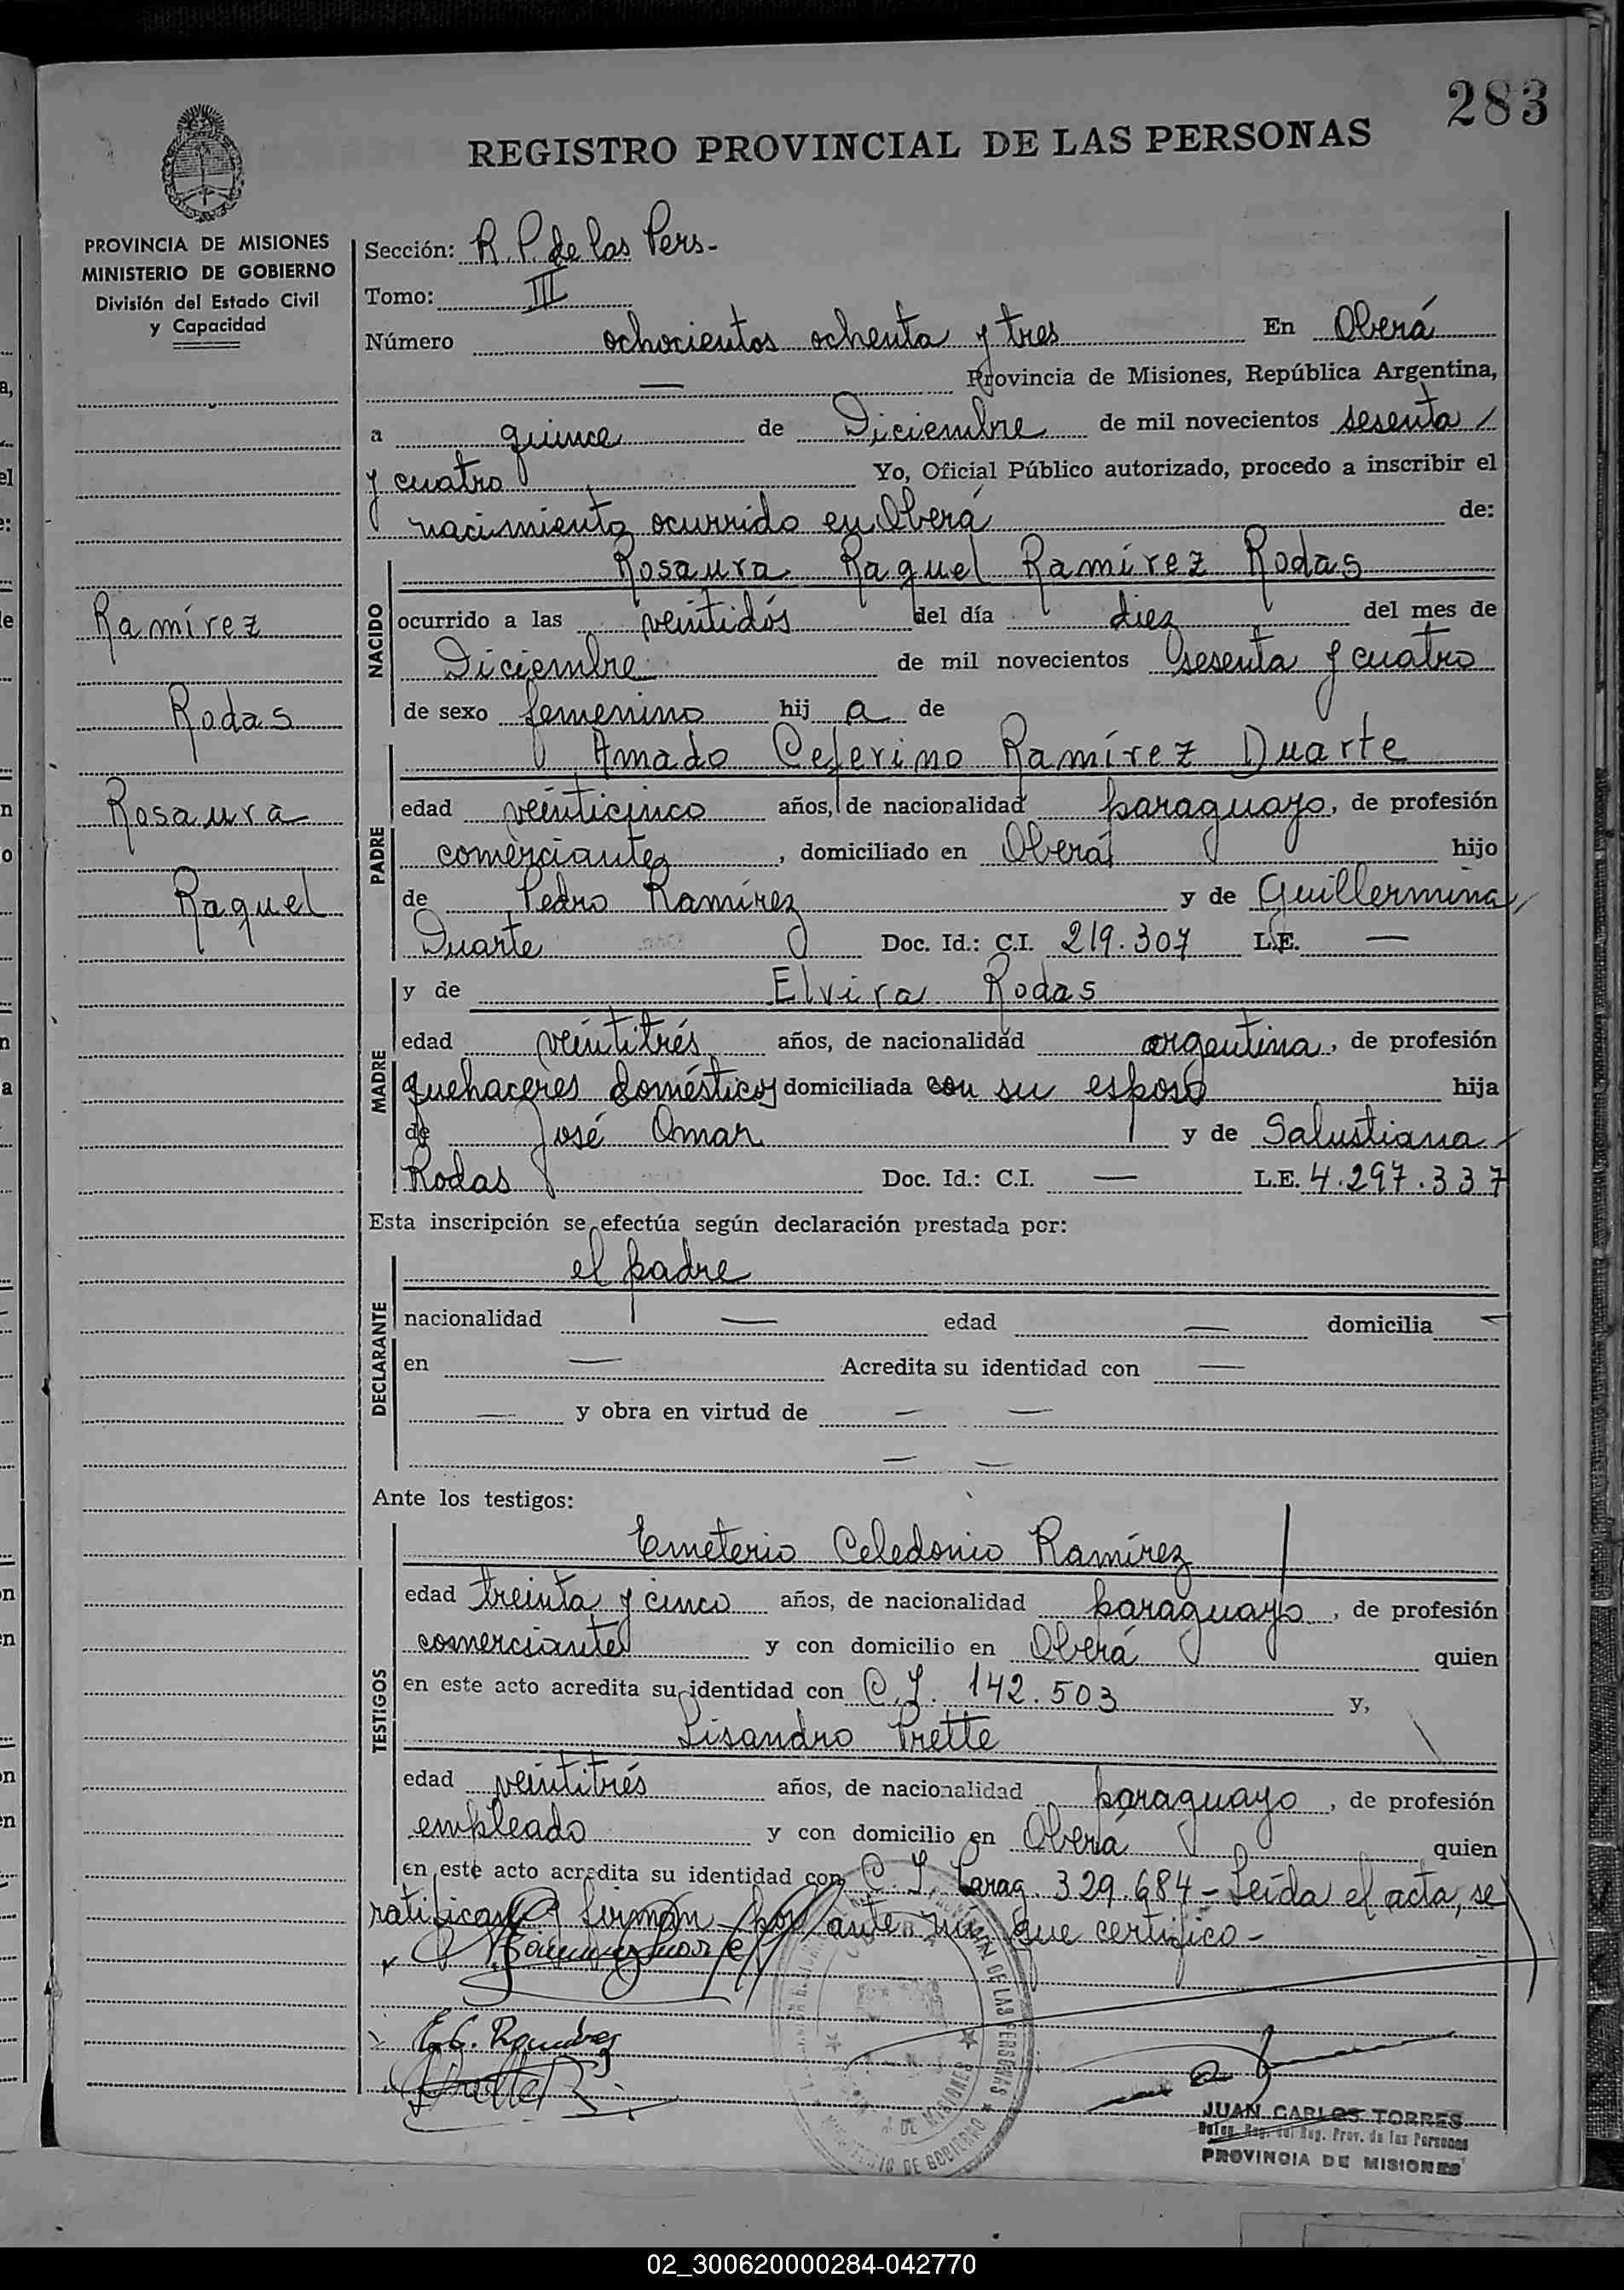 283
REGISTRO PROVINCIAL DE LAS PERSONAS
PROVINCIA DE MISIONES
MINISTERIO DE GOBIERNO
División del Estado Civil
y Capacidad
Ramírez
Rodas
Rosaura
Raquel
Sección: R. P. de las Pers-
Tomo: III
Número ochocientos ochenta y tres En Oberá
— Provincia de Misiones, República Argentina,
a quince de Diciembre de mil novecientos sesenta /
y cuatro Yo, Oficial Público autorizado, procedo a inscribir el
nacimiento ocurrido en Oberá de:
NACIDO
Rosaura Raquel Ramírez Rodas
ocurrido a las veintidós del día diez del mes de
Diciembre de mil novecientos sesenta y cuatro
de sexo femenino hij a de
PADRE
Amado Ceferino Ramírez Duarte
edad veinticinco años, de nacionalidad paraguayo, de profesión
comerciante, domiciliado en Oberá hijo
de Pedro Ramírez y de Guillermina /
Duarte Doc. Id.: C.I. 219.307 L.E. —
MADRE
y de Elvira Rodas
edad veintitrés años, de nacionalidad argentina, de profesión
quehaceres domésticos domiciliada con su esposo hija
de José Omar y de Salustiana /
Rodas Doc. Id.: C.I. — L.E. 4.297.337
Esta inscripción se efectúa según declaración prestada por:
DECLARANTE
el padre
nacionalidad — edad — domicilia —
en — Acredita su identidad con —
— y obra en virtud de — —
— —
Ante los testigos:
TESTIGOS
Emeterio Celedonio Ramírez
edad treinta y cinco años, de nacionalidad paraguayo, de profesión
comerciante y con domicilio en Oberá quien
en este acto acredita su identidad con C.I. 142.503 y,
Lisandro Prette
edad veintitrés años, de nacionalidad paraguayo, de profesión
empleado y con domicilio en Oberá quien
en este acto acredita su identidad con C. I. Parag. 329.684 - Leída el acta, se
ratifican y firman por ante mí que certifico -
E. C. Ramírez
DE LAS PERSONAS
DE MISIONES
MINISTERIO DE GOBIERNO
JUAN CARLOS TORRES
Deleg. Reg. del Reg. Prov. de las Personas
PROVINCIA DE MISIONES
02_300620000284-042770